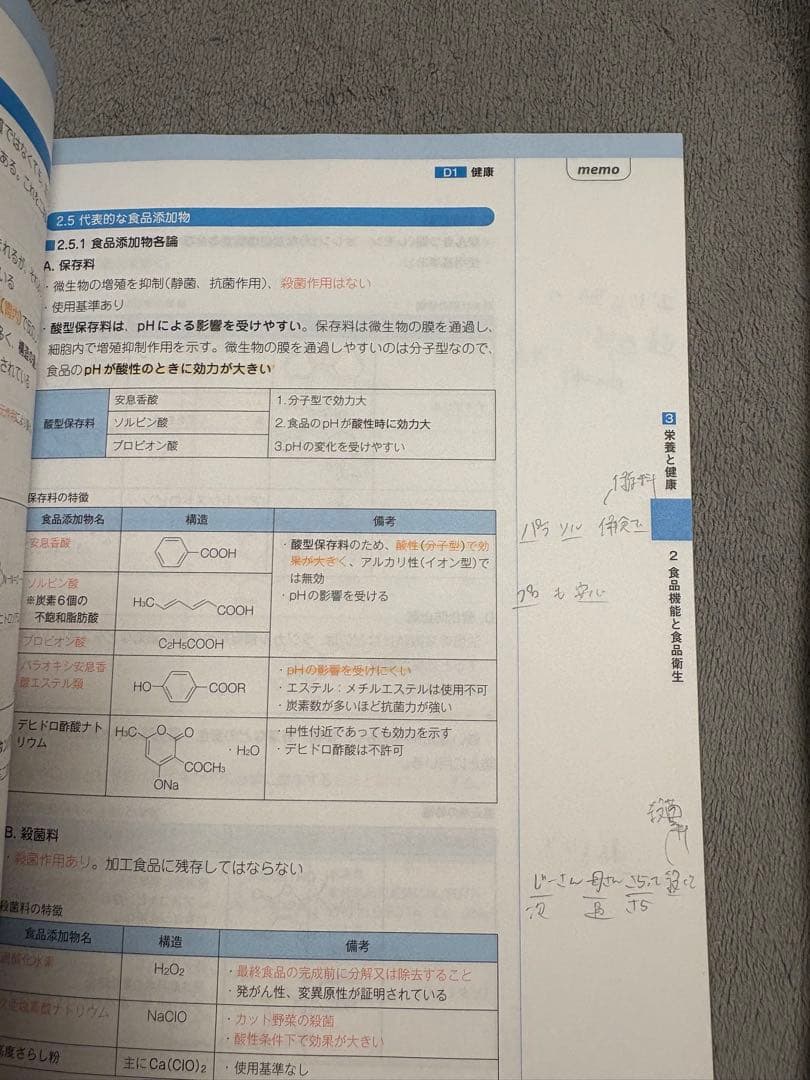 D1 健康
memo
2.5 代表的な食品添加物
2.5.1 食品添加物各論
A. 保存料
・微生物の増殖を抑制(静菌、抗菌作用)、殺菌作用はない
・使用基準あり
・酸型保存料は、pHによる影響を受けやすい。保存料は微生物の膜を通過し、
細胞内で増殖抑制作用を示す。微生物の膜を通過しやすいのは分子型なので、
食品のpHが酸性のときに効力が大きい
酸型保存料
安息香酸
ソルビン酸
プロピオン酸
1.分子型で効力大
2.食品のpHが酸性時に効力大
3.pHの変化を受けやすい
保存料の特徴
食品添加物名 構造 備考
安息香酸
COOH
・酸型保存料のため、酸性(分子型)で効
果が大きく、アルカリ性(イオン型)で
は無効
・pHの影響を受ける
ソルビン酸
※炭素6個の
不飽和脂肪酸
H₃C COOH
プロピオン酸 C₂H₅COOH
パラオキシ安息香
酸エステル類
HO COOR
・pHの影響を受けにくい
・エステル：メチルエステルは使用不可
・炭素数が多いほど抗菌力が強い
デヒドロ酢酸ナト
リウム
H₃C O O
・H₂O
COCH₃
ONa
・中性付近であっても効力を示す
・デヒドロ酢酸は不許可
B. 殺菌料
・殺菌作用あり。加工食品に残存してはならない
殺菌料の特徴
食品添加物名 構造 備考
過酸化水素 H₂O₂
・最終食品の完成前に分解又は除去すること
・発がん性、変異原性が証明されている
次亜塩素酸ナトリウム NaClO
・カット野菜の殺菌
・酸性条件下で効果が大きい
高度さらし粉 主にCa(ClO)₂ ・使用基準なし
3 栄養と健康
2 食品機能と食品衛生
保存料
パラ ソル
も 安心
殺菌料
じーさん 母さん さらって 殺して
次 さら